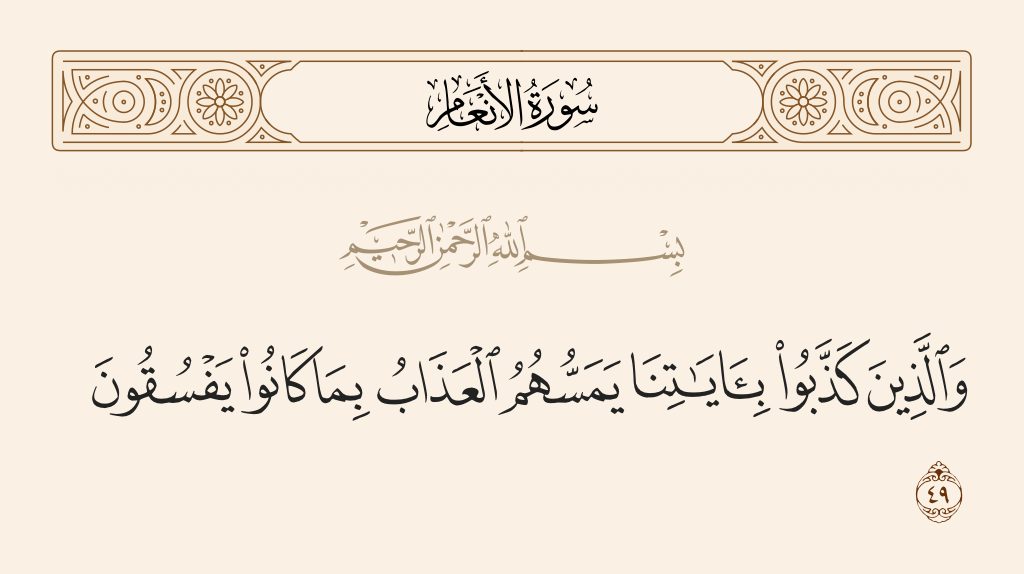 سُورَةُ الأَنْعَامِ
بِسْمِ ٱللَّهِ ٱلرَّحْمَٰنِ ٱلرَّحِيمِ
وَٱلَّذِينَ كَذَّبُوا۟ بِـَٔايَـٰتِنَا يَمَسُّهُمُ ٱلْعَذَابُ بِمَا كَانُوا۟ يَفْسُقُونَ
٤٩